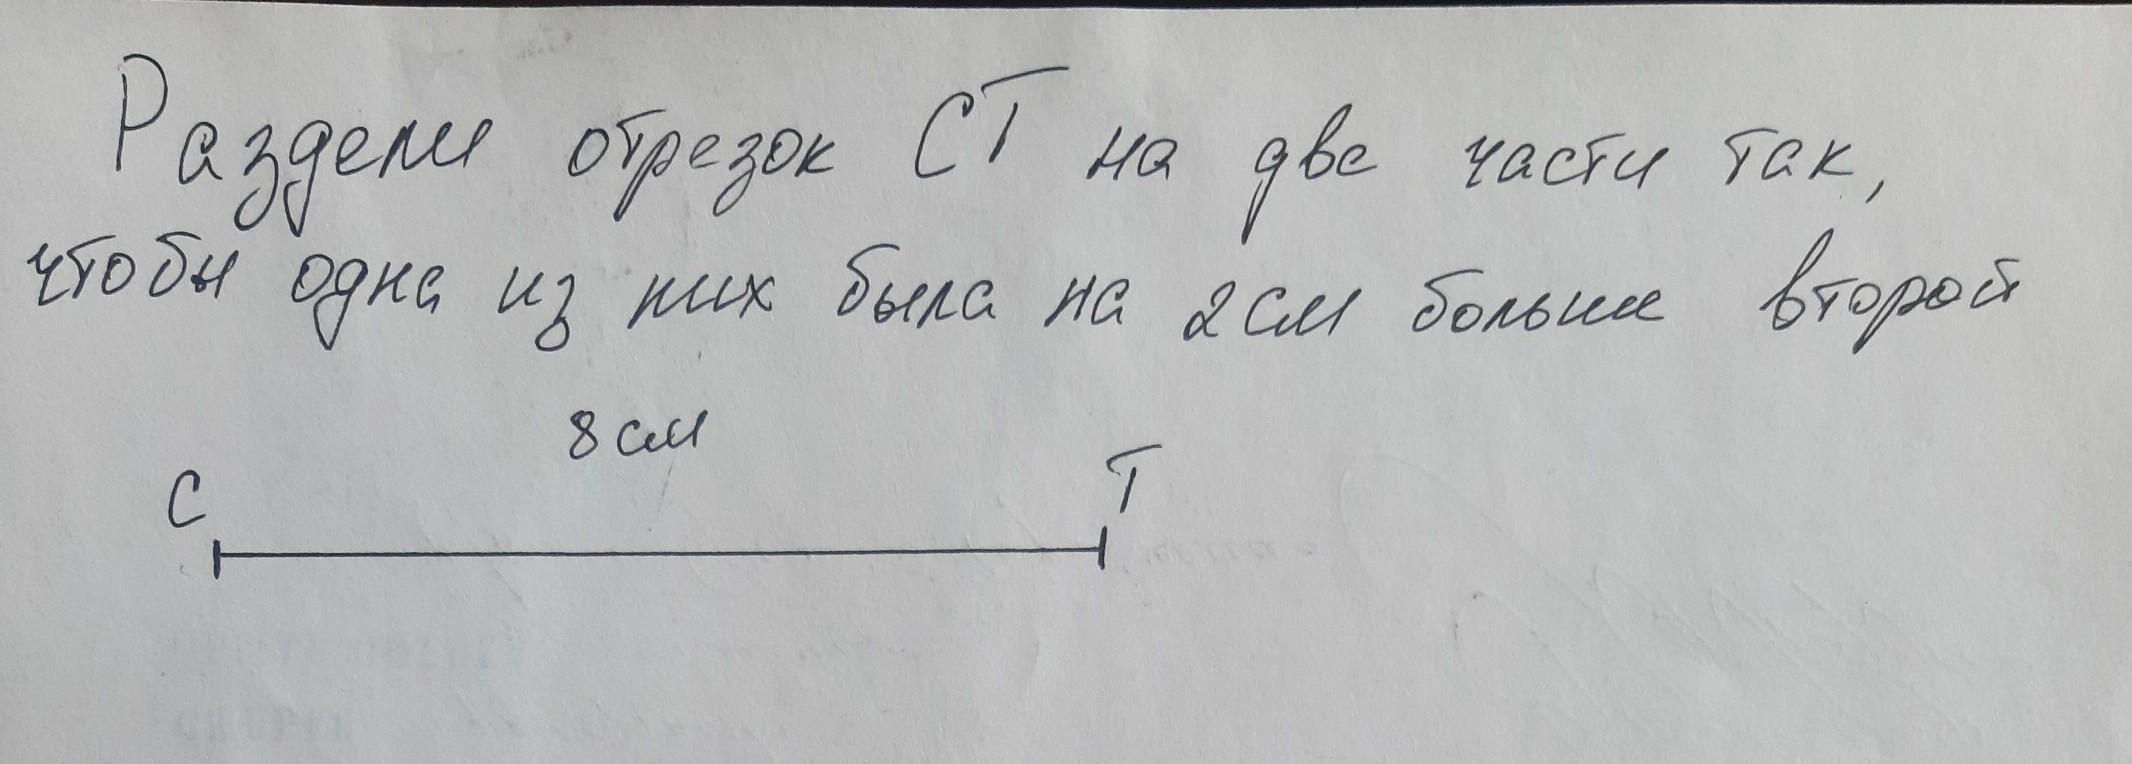 Раздели отрезок СТ на две части так,
чтобы одна из них была на 2 см больше второй
8 см
С Т